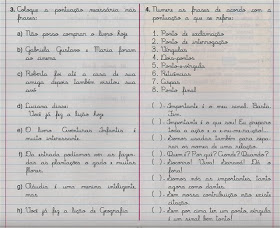 3. Coloque a pontuação necessária nas
frases:
a) Não posso comprar o livro hoje
b) Gabriela Gustavo e Maria foram
ao cinema
c) Roberta foi até a casa de sua
amiga depois também visitou sua
avó
d) Luciana disse:
Você já fez a lição hoje
e) O livro Aventuras Infantis é
muito interessante
f) Na estrada podíamos ver as fazen-
das as plantações o gado e muitas
flores
g) Cláudia é uma menina inteligente
mas
h) Você já fez a lição de Geografia
4. Numere as frases de acordo com a
pontuação a que se refere:
1. Ponto de exclamação
2. Ponto de interrogação
3. Vírgulas
4. Dois-pontos
5. Ponto-e-vírgula
6. Reticências
7. Aspas
8. Ponto final
( )- Importante é o meu sinal. Basta,
Fim.
( )- Importante é o que sou! Eu preparo
toda a ação e
( )- Somos usadas também para sepa-
rar os nomes de uma relação.
( )- Quem? Por quê? Como? Quando?
( )- Socorro! Viva! Dê o
fora!
( )- Somos nós as importantes, tanto
agora como dantes.
( )- Sem nossa contribuição não existe
citação.
( )- Sem por cima ter um ponto, vírgula
é um sinal bem tonto!